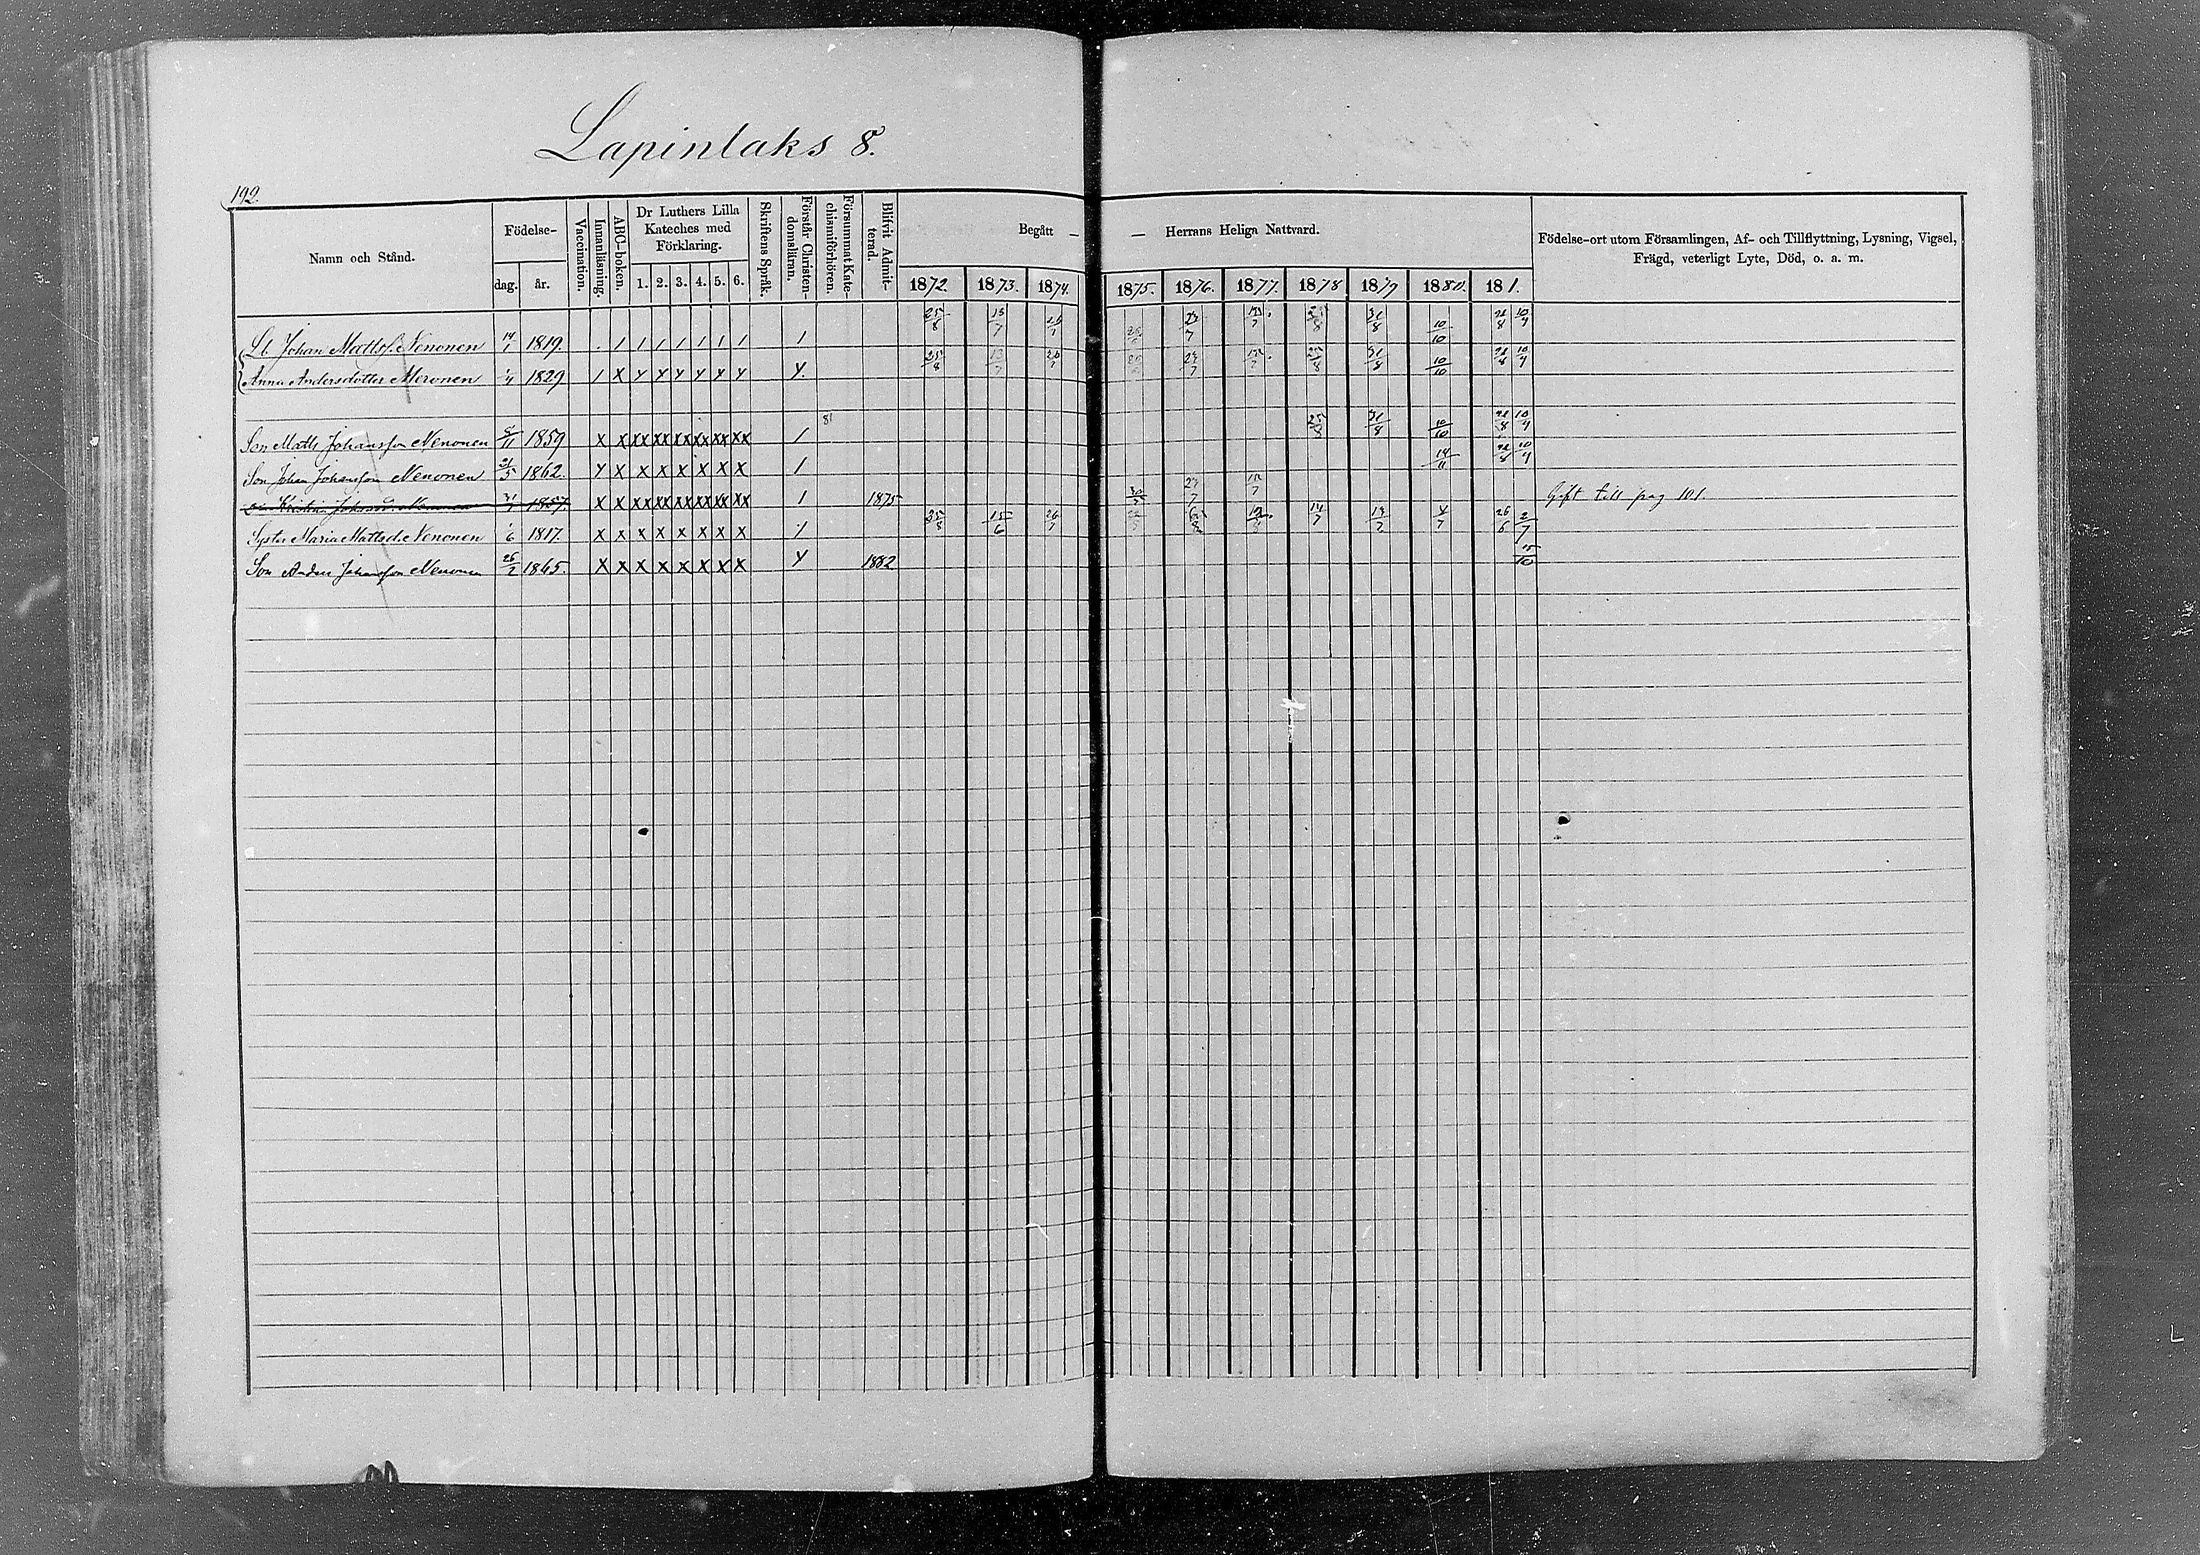 Lapinlaks 8.
192.
Namn och Stånd. Födelse- dag. år. Vaccination. Innanläsning. ABC-boken. Dr Luthers Lilla Kateches med Förklaring. 1. 2. 3. 4. 5. 6. Skriftens Språk. Förstår Christendomsläran. Försummat Katechismiförhören. Blifvit Admitterad. Begått — — Herrans Heliga Nattvard. Födelse-ort utom Församlingen, Af- och Tillflyttning, Lysning, Vigsel, Frägd, veterligt Lyte, Död, o. a. m.
1872. 1873. 1874. 1875. 1876. 1877. 1878 1879 1880. 181.
Lb. Johan Mattss. Nenonen 14/1 1819. 25/8 13/7 26/7 23/7 31/8 10/10 21/8 10/4
Anna Andersdotter Meronen 1/4 1829 25/8 13/7 26/7 23/7 31/8 10/10 21/8 10/4
81
Son Matts Johansson Nenonen 5/11 1859 25/8 31/8 10/10 21/8 10/4
Son Johan Johansson Nenonen 21/5 1862. 14/11 21/8 10/4
Kristina Johansd. Nenonen 1857 1875 Gift till pag 101
Syster Maria Mattsd. Nenonen 1/6 1817. 25/8 15/6 26/7 14/7 4/7 26/6 2/7
Son Anders Johansson Nenonen 26/2 1865. 1882 15/10